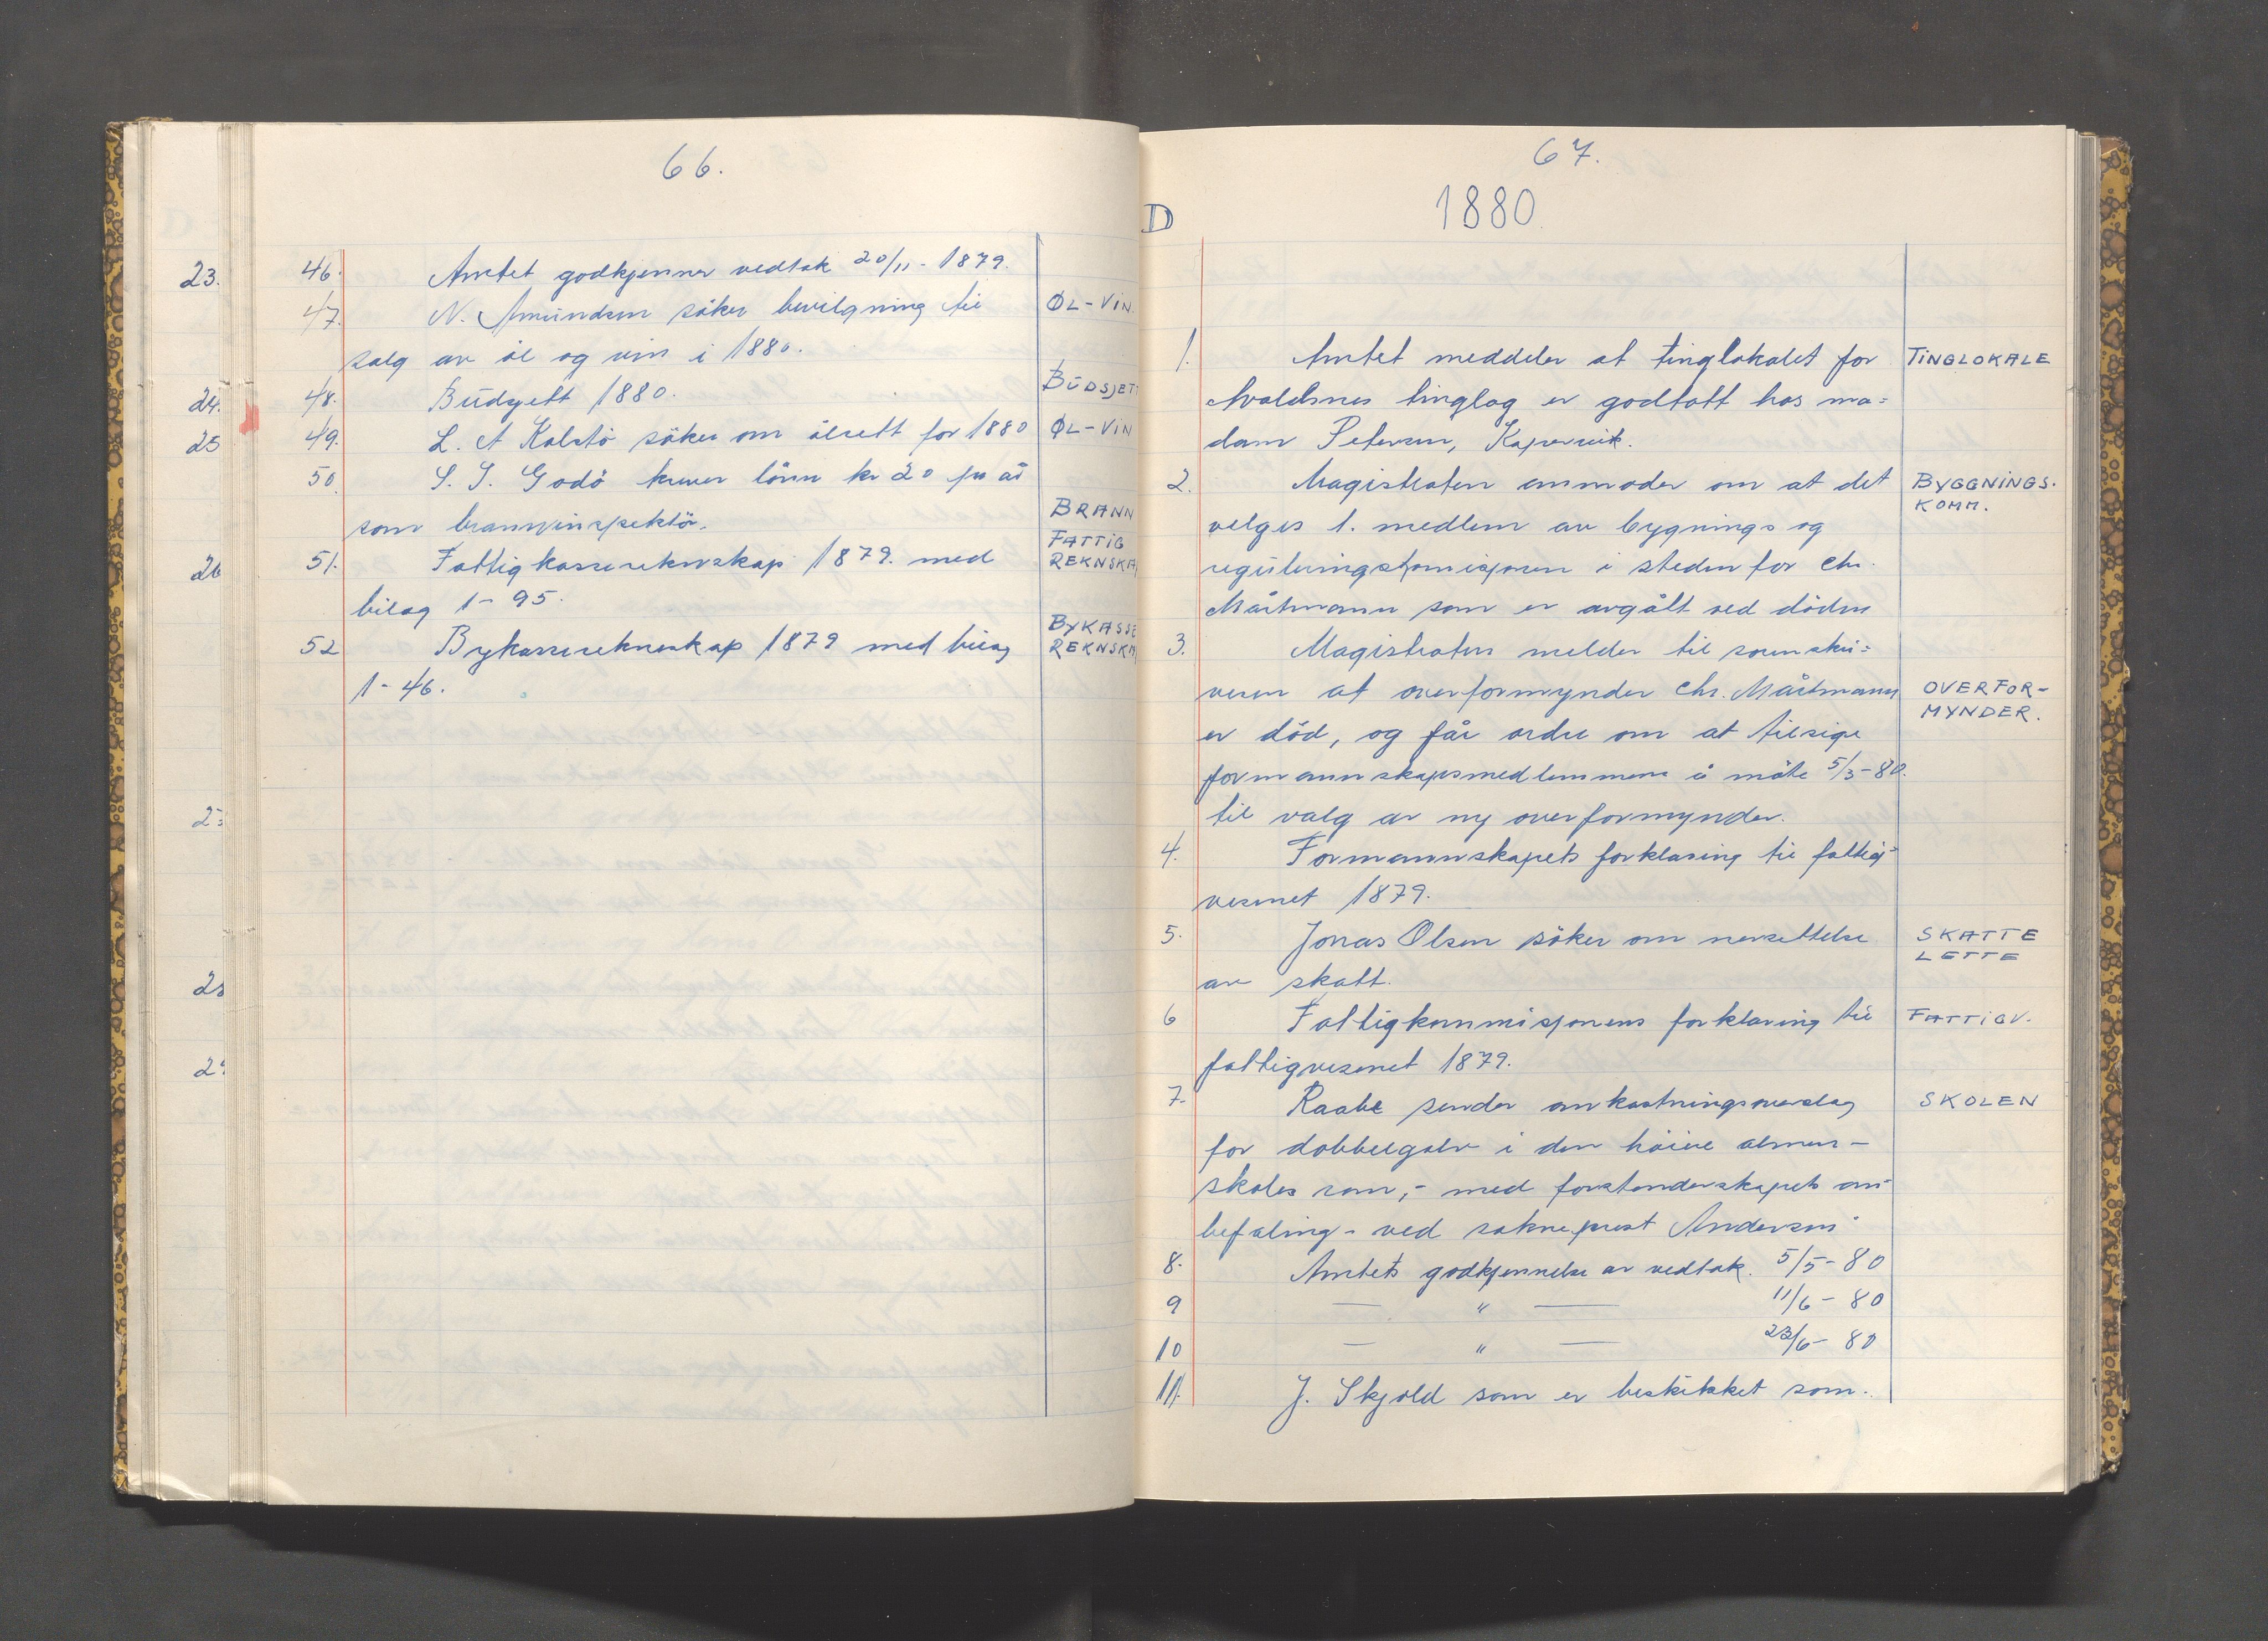 66.
23.
46. Amtet godkjenner vedtak 20/11 - 1879.
47. N. Amundsen söker bevilgning til ØL-VIN.
salg av öl og vin i 1880.
24. 48. Budgett 1880. BUDSJETT
25 49. L. A Kolstö söker om ölrett for 1880 ØL-VIN
50. S. S. Godö krever lönn kr 20 pr år
som branninspektör. BRANN
26 51. Fattigkasserekneskap 1879. med FATTIG REKNSKA
bilag 1 - 95.
52 Bykasserekneskap 1879 med bilag BYKASSE REKNSKA
1 - 46.
28
67.
D 1880.
1. Amtet meddeler at tinglokalet for TINGLOKALE
Avaldsnes tinglag er godtatt hos ma=
dam Petersen, Kopervik.
2. Magistraten anmoder om at det BYGGNINGS.
KOMM.
velges 1. medlem av bygnings og
reguleringskomisjonen i steden for Chr.
Mårtmann som er avgått ved döden
3. Magistraten melder til sorenskri=
veren at overformynder Chr. Mårtmann OVERFOR-
MYNDER.
er död, og får ordre om at tilsige
formannskapsmedlemmene å möte 5/3-80.
til valg av ny overformynder.
4. Formannskapets forklaring til fattig=
vesenet 1879.
5. Jonas Olsen söker om nersettelse SKATTE
LETTE
av skatt.
6 Fattigkommisjonens forklaring til FATTIGV.
fattigvesenet 1879.
7. Raabe sender omkostningsoverslag SKOLEN
for dobbelgolv i den höiere almen-
skoles rom,- med forstanderskapets an-
befaling - ved sokneprest Andersen
8. Amtets godkjennelse av vedtak. 5/5-80
9 — " — 11/6 - 80
10 — " — 23/6 - 80
11. J. Skjold som er beskikket som.